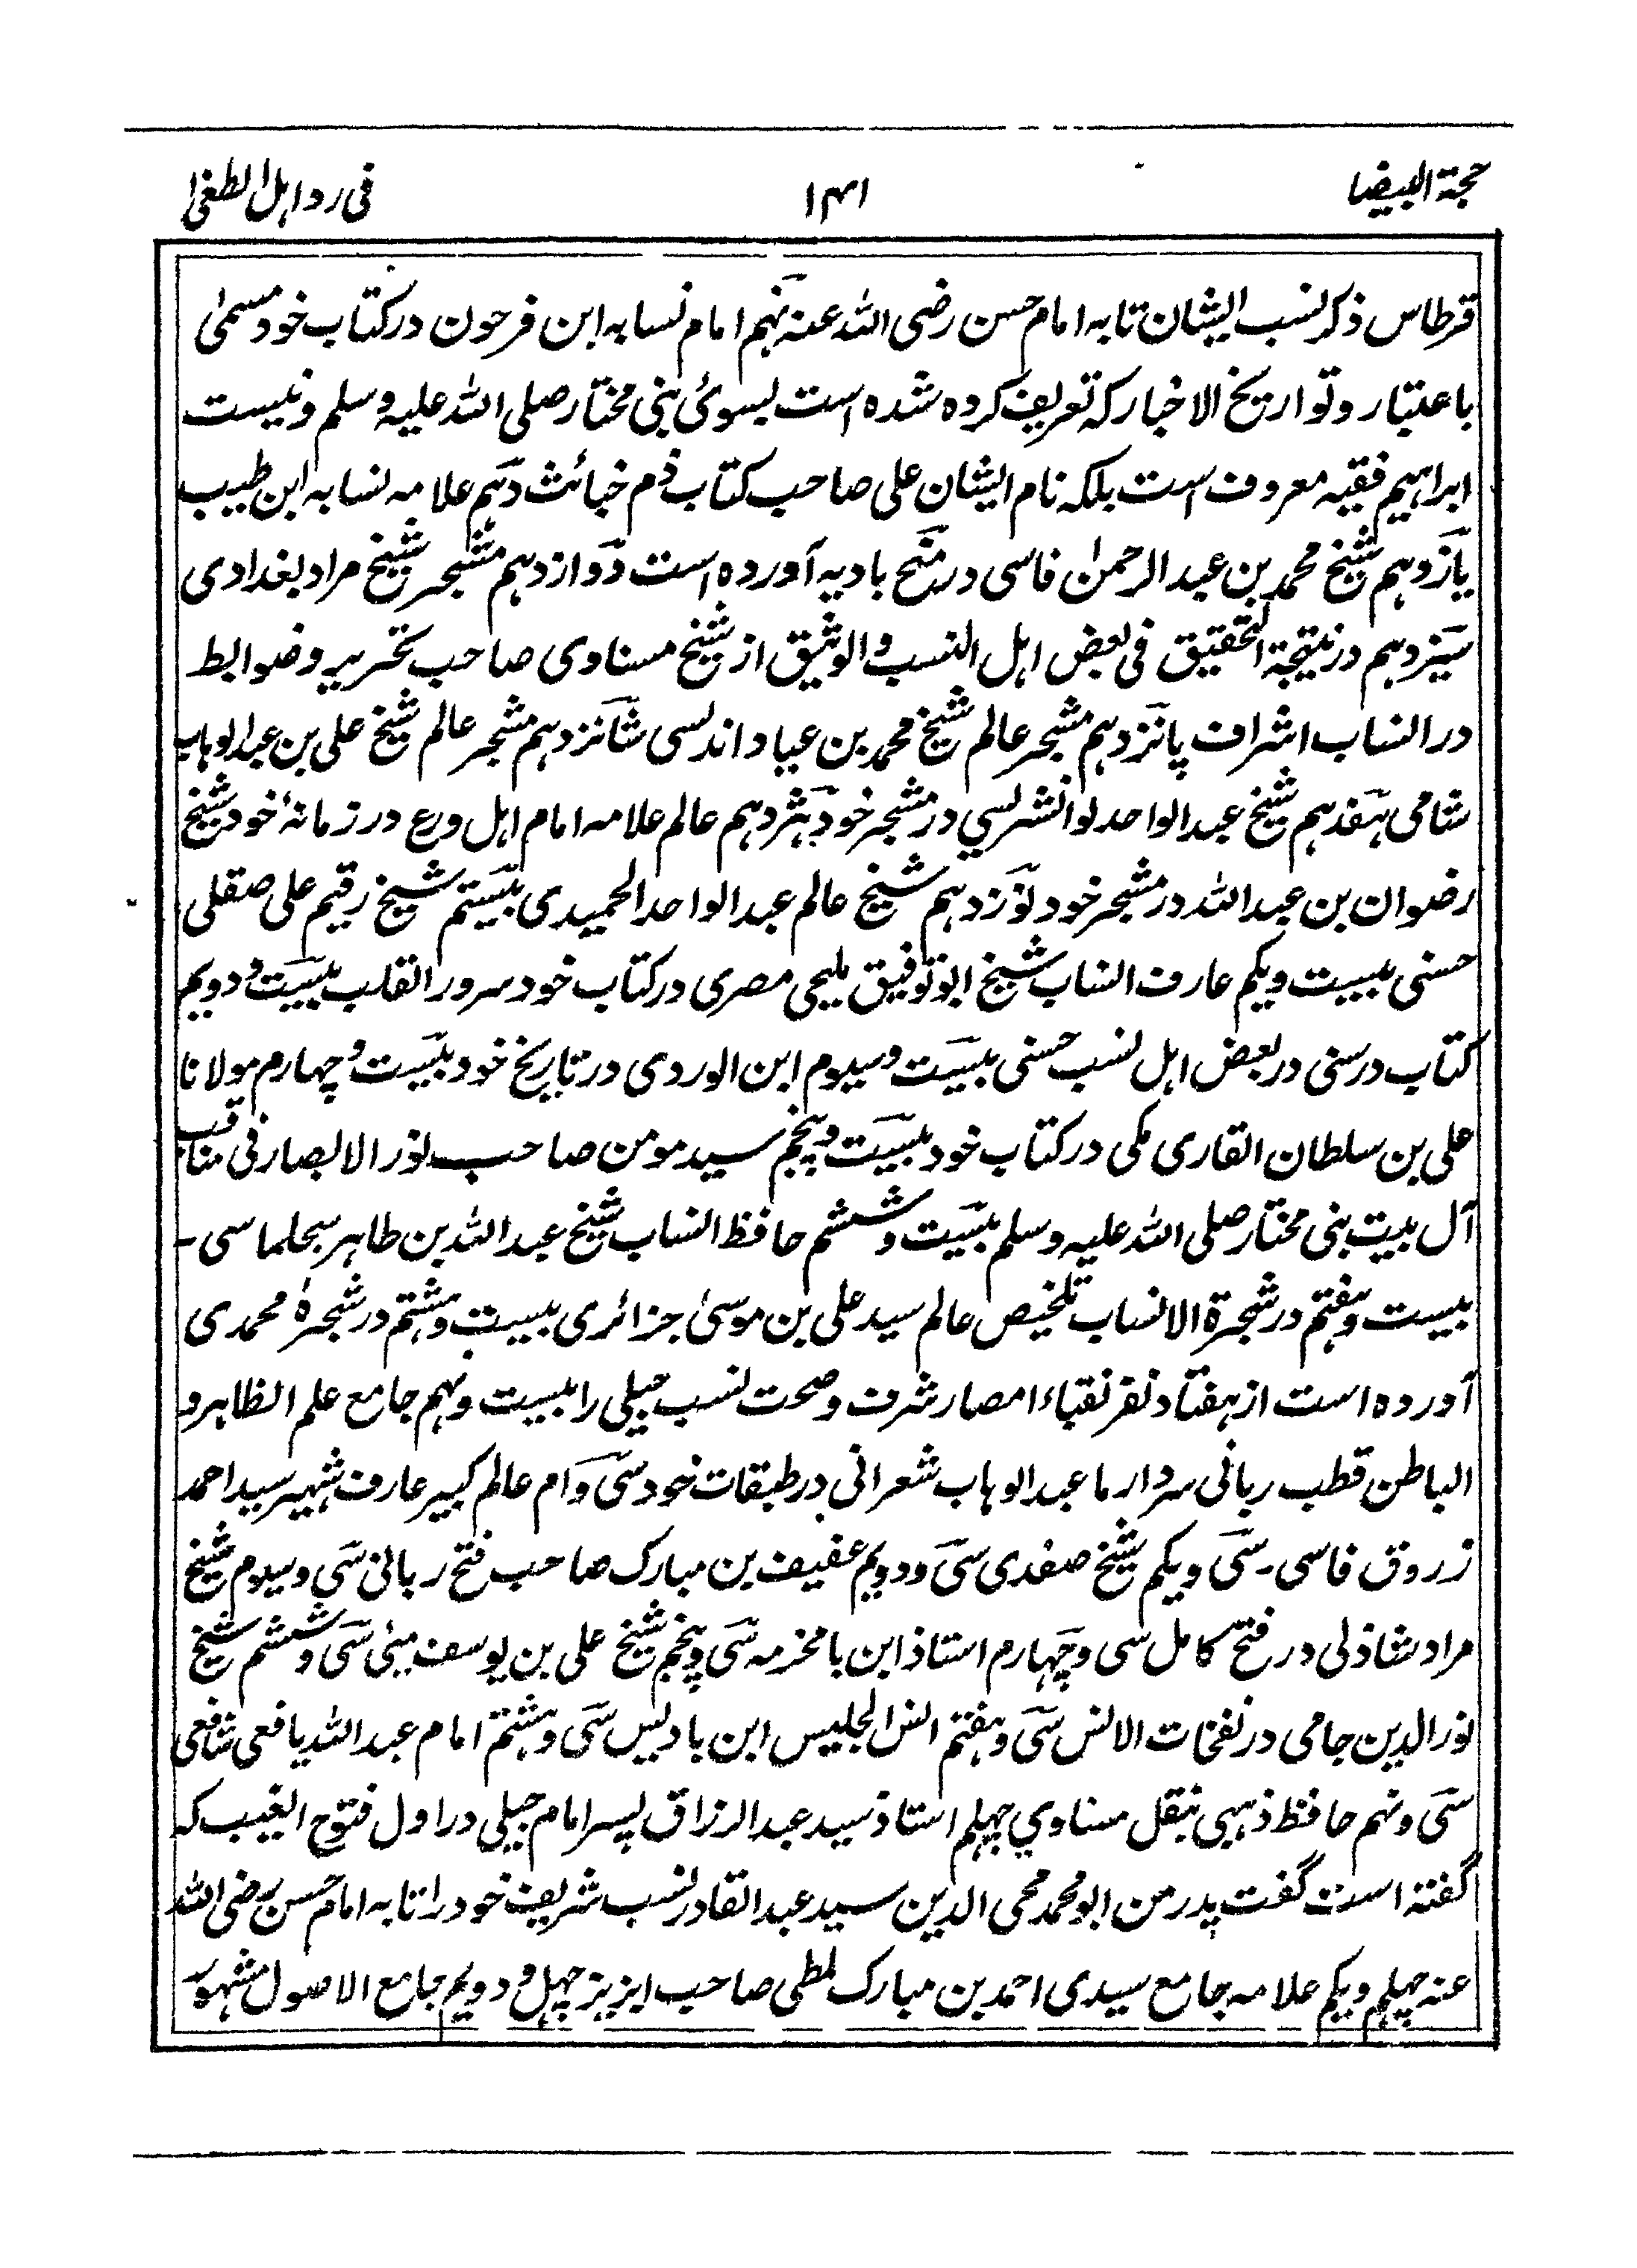 حجة البیضا
۱۴۱
فی رد اہل الطغیٰ
قرطاس ذکر نسب ایشان تا بہ امام حسن رضی اللہ عنہ نہم امام نسابہ ابن فرحون در کتاب خود مسمیٰ
باعتبار و تواریخ الاخبار کہ تعریف کردہ شدہ است بسوئ نبی مختار صلی اللہ علیہ وسلم و نیست
ابراہیم فقیہ معروف است بلکہ نام ایشان علی صاحب کتاب ذم خبائث دہم علامہ نسابہ ابن طیب
یازدہم شیخ محمد بن عبد الرحمٰن فاسی در منح بادیہ آوردہ است دوازدہم مشجر شیخ مراد بغدادی
سیزدہم در نتیجۃ التحقیق فی بعض اہل النسب والوثیق از شیخ مسناوی صاحب تحریر و ضوابط
در انساب اشراف پانزدہم مشجر عالم شیخ محمد بن عباد اندلسی شانزدہم مشجر عالم شیخ علی بن عبد الوہاب
شامی ہفدہم شیخ عبد الواحد لوانشریسی در مشجر خود ہژدہم عالم علامہ امام اہل ورع در زمانۂ خود شیخ
رضوان بن عبد اللہ در مشجر خود نوزدہم شیخ عالم عبد الواحد الحمیدی بیستم شیخ رقیم علی صقلی
حسنی بیست ویکم عارف انساب شیخ ابو توفیق ملیجی مصری در کتاب خود سرور القلب بیست و دویم
کتاب در سنی در بعض اہل نسب حسنی بیست وسیوم ابن الوردی در تاریخ خود بیست و چہارم مولانا
علی بن سلطان القاری مکی در کتاب خود بیست و پنجم سید مومن صاحب نور الابصار فی مناقب
آل بیت نبی مختار صلی اللہ علیہ وسلم بیست و ششم حافظ انساب شیخ عبد اللہ بن طاہر سجلماسی -
بیست و ہفتم در شجرۃ الانساب تلخیص عالم سید علی بن موسیٰ جزائری بیست و ہشتم در شجرۂ محمدی
آوردہ است از ہفتاد نفر نقباء امصار شرف و صحت نسب جیلی را بیست و نہم جامع علم الظاہر و
الباطن قطب ربانی سردار ما عبد الوہاب شعرانی در طبقات خود سی و ام عالم کبیر عارف شہیر سید احمد
زروق فاسی - سی ویکم شیخ صفدی سی و دویم عفیف بن مبارک صاحب فتح ربانی سی وسیوم شیخ
مراد شاذلی در فتح کامل سی و چہارم استاذ ابن با مخزمہ سی و پنجم شیخ علی بن یوسف سی و ششم شیخ
نور الدین جامی در نفخات الانس سی و ہفتم انس الجلیس ابن بادیس سی و ہشتم امام عبد اللہ یافعی شافعی
سی و نہم حافظ ذہبی بنقل مسناوی چہلم استاذ سید عبد الرزاق پسر امام جیلی در اول فتوح الغیب کہ
گفتہ است گفت پدر من ابو محمد محی الدین سید عبد القادر نسب شریف خود را تا بہ امام حسن رضی اللہ
عنہ چہلم ویکم علامہ جامع سیدی احمد بن مبارک لمطی صاحب ابریز چہل و دویم جامع الاصول مشہور